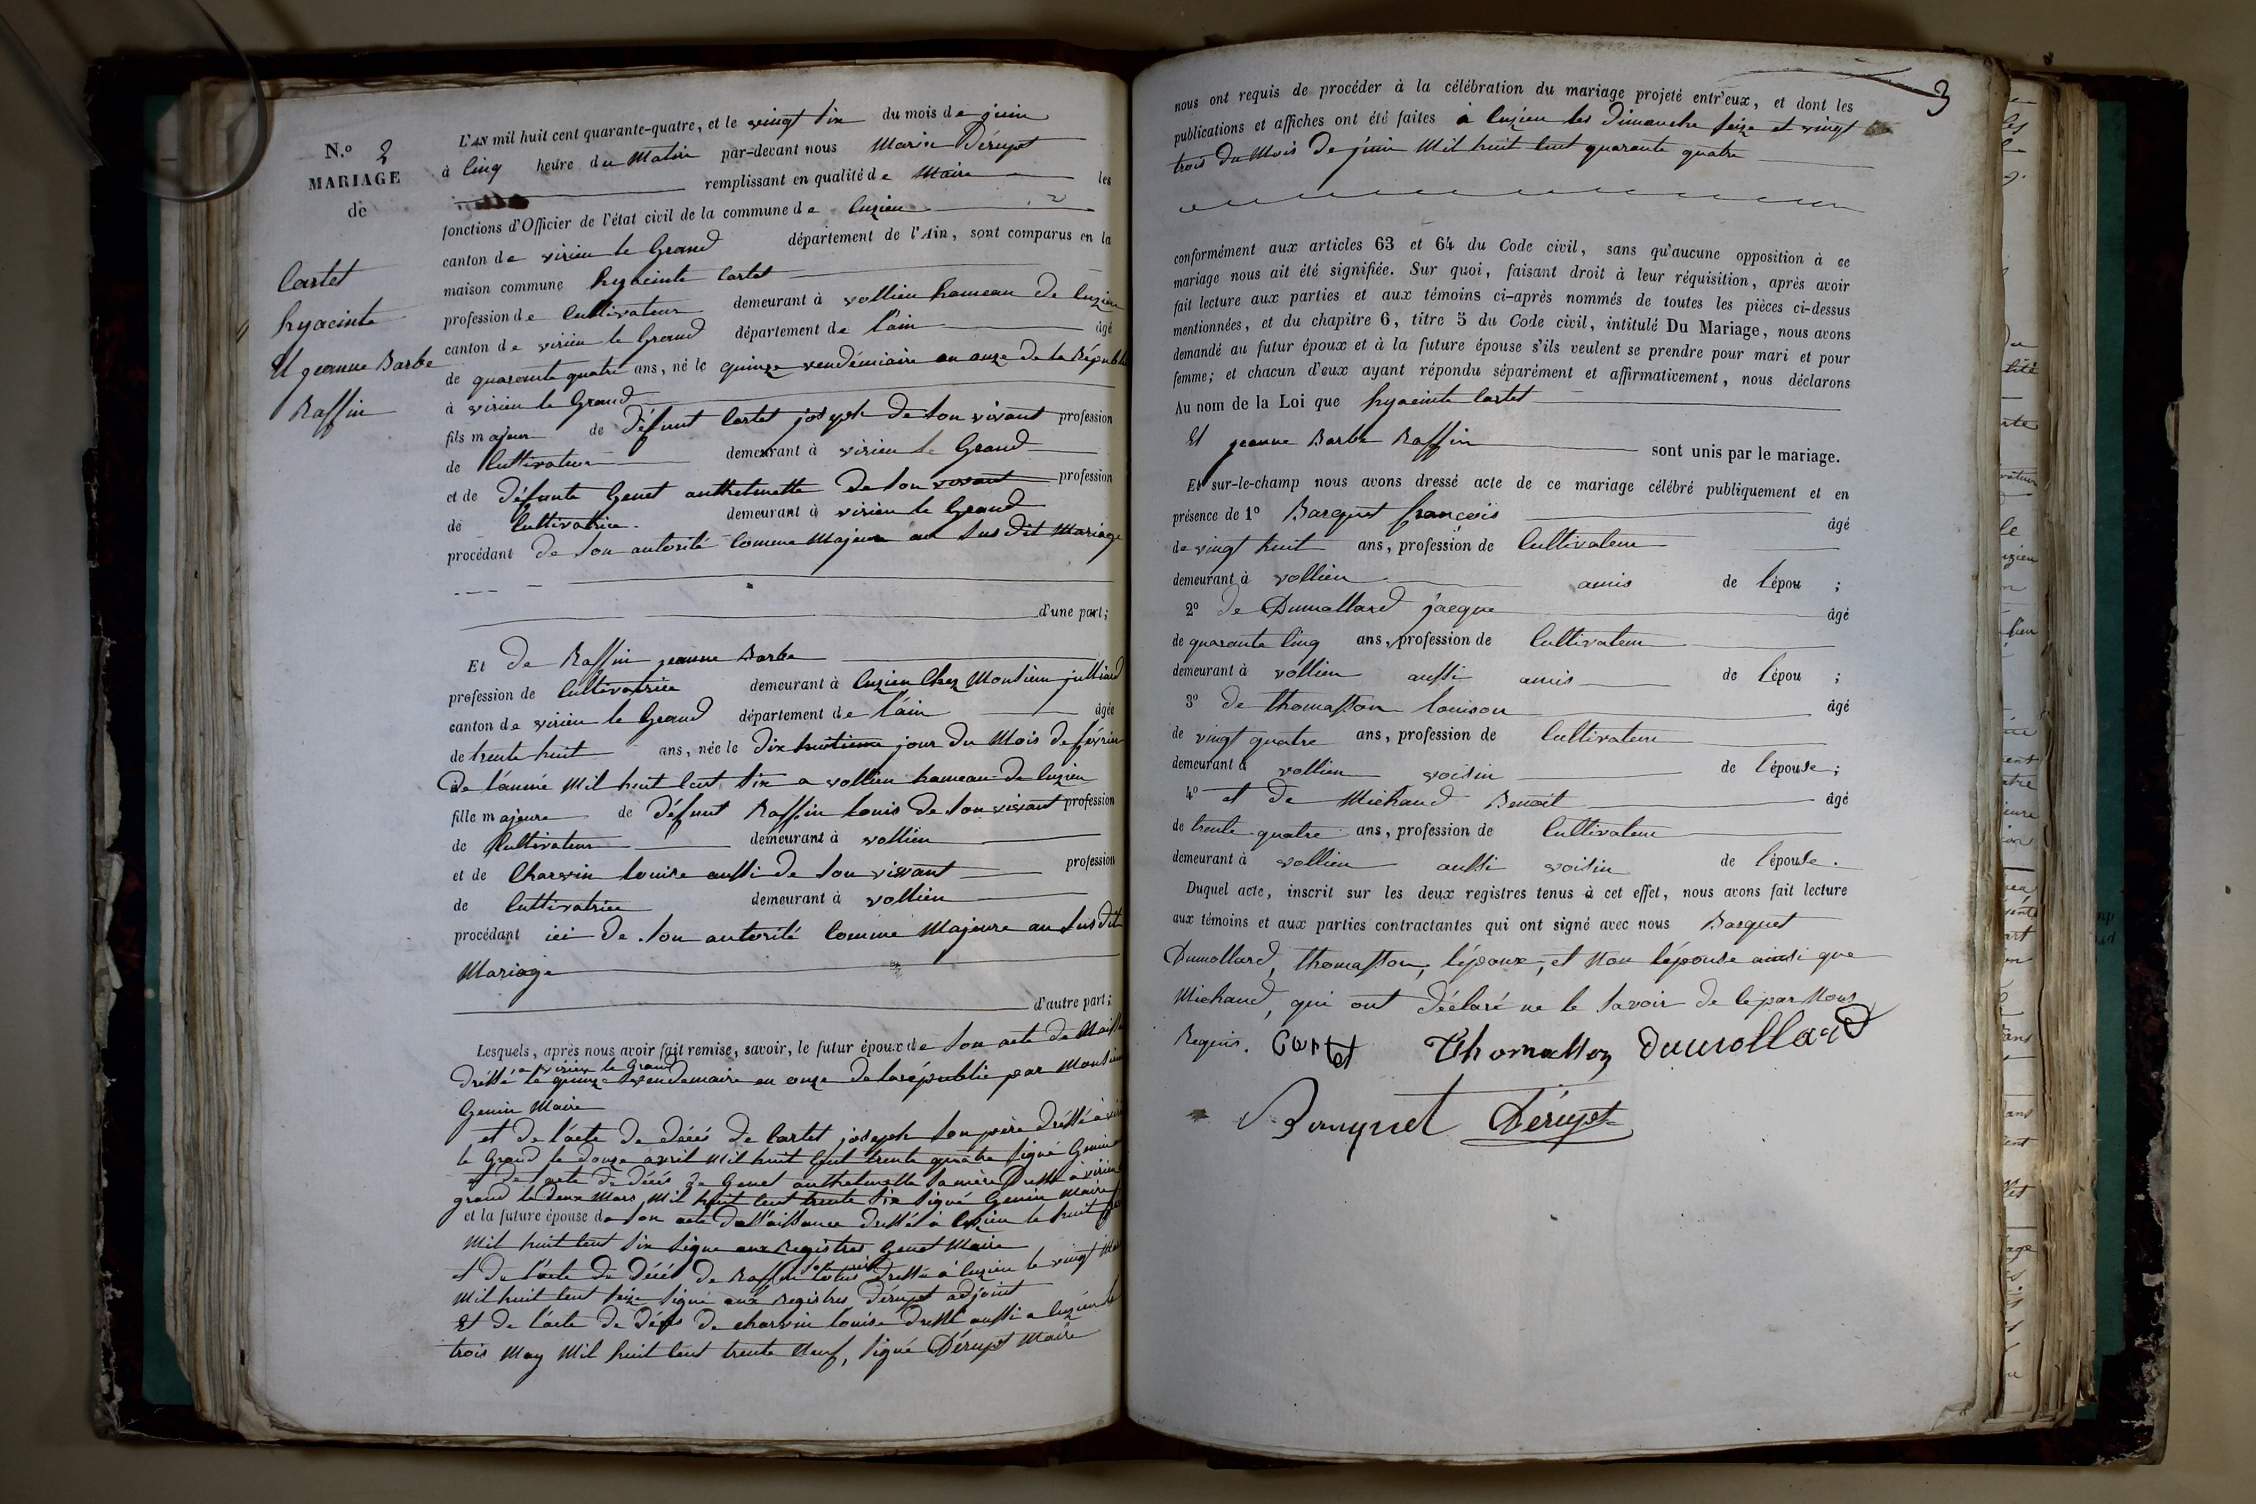 N.o 2
MARIAGE
de
Cartet
hyacinte
Et jeanne Barbe
Raffin
L'AN mil huit cent quarante-quatre, et le vingt six du mois de juin
à Cinq heure du Matin par-devant nous Marin Déruyet
remplissant en qualité de Maire les
fonctions d'Officier de l'état civil de la commune de Cuzieu
canton de virieu le Grand département de l'Ain, sont comparus en la
maison commune hyacinte Cartet
profession de Cultivateur demeurant à vollien hameau de Cuzieu
canton de virieu le Grand département de l'ain âgé
de quarante quatre ans, né le quinze vendémiaire an onze de la Républi
à virieu le Grand
fils majeur de défunt Cartet joseph de son vivant profession
de Cultivateur demeurant à virieu le Grand
et de défunte Genet anthelmette de son vivant profession
de Cultivatrice. demeurant à virieu le Grand
procédant de son autorité comme Majeur au sus dit Mariage
d'une part;
Et de Raffin jeanne Barbe
profession de Cultivatrice demeurant à Cuzieu Chez Monsieur julliard
canton de virieu le Grand département de l'ain âgée
de trente huit ans, née le dix huitieme jour du Mois de février
de l'année Mil huit Cent Six a vollien hameau de Cuzieu
fille majeure de défunt Raffin Louis de son vivant profession
de Cultivateur demeurant à vollien
et de Charvin Louise aussi de son vivant profession
de Cultivatrice demeurant à vollien
procédant ici de son autorité Comme Majeure au sus dit
Mariage
d'autre part;
Lesquels, après nous avoir fait remise, savoir, le futur époux de son acte de Naiss
a virieu le Grand
dréssé le quinze vendemaire an onze de la république par Monsieur
Genin Maire
et de l'acte de décés de Cartet joseph son père dréssé à viri
le Grand le douze avril Mil huit Cent trente quatre signé Genin
et de l'acte de décés de Genet anthelmette sa mère dréssé à virieu
grand le deux Mars Mil huit Cent trente six signé Genin Maire
et la future épouse de son acte de Naissance dréssé à Cuzieu le huit
Mil huit Cent Six signe aux Registres Genet Maire
et de l'acte de décés de Raffin Louis dréssé à Cuzieu le vingt
Mil huit Cent seize signé aux Registres déruyet adjoint
Et de l'acte de décés de charvin Louise dréssé aussi a Cuzieu le
trois May Mil huit Cent trente Neuf, signé Déruyet Maire
3
nous ont requis de procéder à la célébration du mariage projeté entr'eux, et dont les
publications et affiches ont été faites à Cuzieu les dimanche seize et vingt
trois du Mois de juin Mil huit Cent quarante quatre
conformément aux articles 63 et 64 du Code civil, sans qu'aucune opposition à ce
mariage nous ait été signifiée. Sur quoi, faisant droit à leur réquisition, après avoir
fait lecture aux parties et aux témoins ci-après nommés de toutes les pièces ci-dessus
mentionnées, et du chapitre 6, titre 5 du Code civil, intitulé Du Mariage, nous avons
demandé au futur époux et à la future épouse s'ils veulent se prendre pour mari et pour
femme; et chacun d'eux ayant répondu séparément et affirmativement, nous déclarons
Au nom de la Loi que hyacinte Cartet
Et jeanne Barbe Raffin sont unis par le mariage.
Et sur-le-champ nous avons dressé acte de ce mariage célébré publiquement et en
présence de 1o Barquet françois âgé
de vingt huit ans, profession de Cultivateur
demeurant à vollien amis de l'épou ;
2o de Dumollard jacque âgé
de quarante Cinq ans, profession de Cultivateur
demeurant à vollien aussi amis de l'épou ;
3o de thomasson Louison âgé
de vingt quatre ans, profession de Cultivateur
demeurant à vollien voisin de l'épouse;
4o et de Michaud Benoit âgé
de trente quatre ans, profession de Cultivateur
demeurant à vollien aussi voisin de l'épouse.
Duquel acte, inscrit sur les deux registres tenus à cet effet, nous avons fait lecture
aux témoins et aux parties contractantes qui ont signé avec nous Barquet
Dumollard, thomasson, l'époux, et non l'épouse ainsi que
Michaud, qui ont déclaré ne le savoir de ce par Nous
Requis. Cartet Thomasson Dumollard
Barquet Déruyet